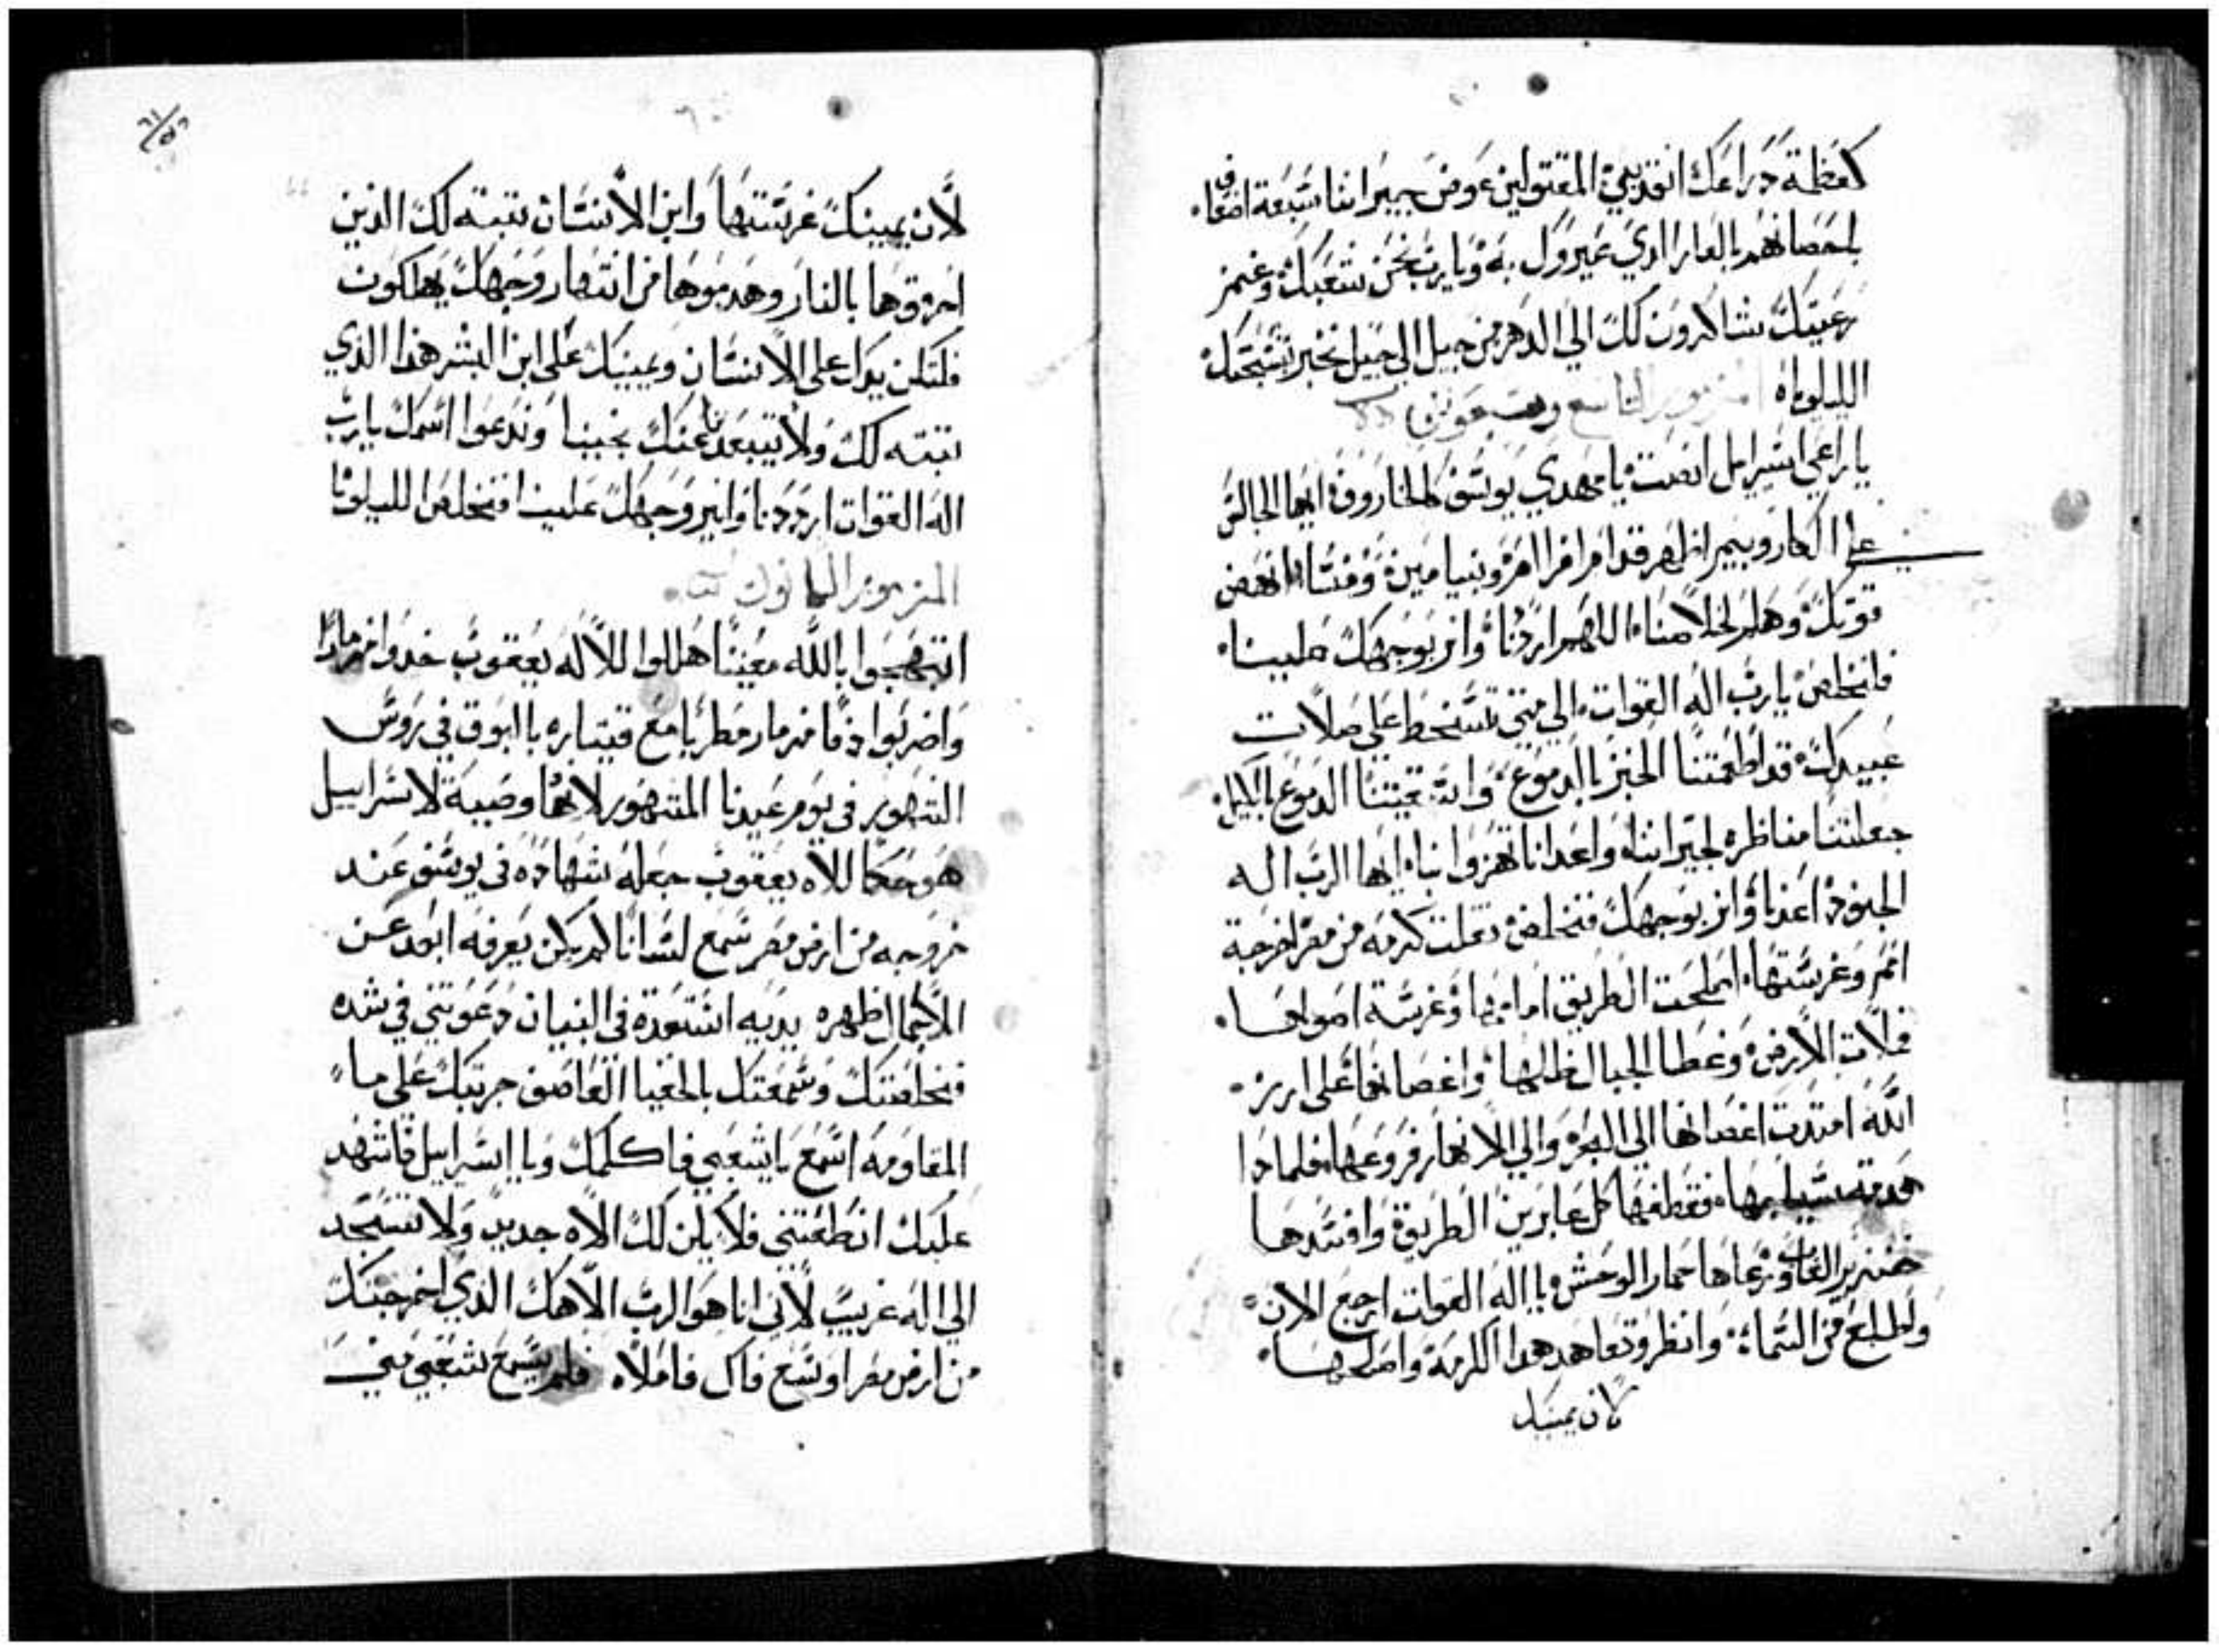 كعظمة دراعك انقد بني المقتولين عوض جيراننا سبعة اضعاف
باحصانهم بالعار الدي عيروك به ويا رب نحن شعبك وغنم
رعيتك شاكرون لك الي الدهر من جيل الي جيل نخبر تسبحتك
الليلوياه المزمور التاسع وسبعون
يا راعي اسرايل انصت يا مهدي يوسف كالخاروف ايها الجالس
علي الكاروبيم اظهر قدام افرام وبنيامين ومنسا انهض
قوتك وهلم لخلاصنا اللهم ارددنا وانر بوجهك علينا
فانخلص يا رب اله القوات الي متي تسخط علي صلات
عبيدك قد اطعمتنا الخبز باالدموع واسقيتنا الدموع بالكيل
جعلتنا مناظره لجيراننا واعدانا تهزوا بنا ايها الرب اله
الجنود اعدنا وانر بوجهك فنخلص نقلت كرمه من مصر اخرجة
امم وغرستها اصلحت الطريق امامها وغرسة اصولها
فملات الارض وغطا الجبال ظلها واغصانها علي ارز
الله امتدت اغصانها الي البحر والي الانهار فروعها فلمادا
هدمة سياجها فقطفها كل عابرين الطريق وافسدها
خنزير الغاب ورعاها حمار الوحش يا اله القوات ارجع الان
واطلع من السماء وانظر وتعاهد هدا الكرمة واصلحها
لان يمينك
لان يمينك غرستها وابن الانسان تبته لك الدين
احرقوها بالنار وهدموها من انتهار وجهك يهلكون
فلتكن يدك علي الانسان ويمينك علي ابن البشر هدا الذي
تبته لك ولا تبعدنا عنك نحيينا وندعوا اسمك يا رب
اله القوات ارددنا وانير وجهك علينا فنخلص الليلويا
المزمور التمانون
ابتهجوا بالله معيننا هللوا للاله يعقوب خدوا مزمارا
واضربوا دفا مزمار مطربا مع قيتاره باابوق في روس
الشهور في يوم عيدنا المشهور لانها وصية لاسراييل
هو وحكما للاه يعقوب جعله شهاده في يوسف عند
خروجه من ارض مصر سمع لسانا لم يكن يعرفه ابعد عن
الاحمال ظهره يديه استعدة في البنيان دعوتني في شده
فنخلصتك وسمعتك بالخفيا العاصف جربتك علي ما
المقاومه اسمع يا شعبي فاكلمك ويا اسراييل فاشهد
عليك ان اطعتني فلا يكن لك الاه جديد ولا تسجد
الي اله غريب لاني انا هو الرب الاهك الدي اخرجتك
من ارض مصر اوسع فاك فاملاه فلم يسمع شعبي مني